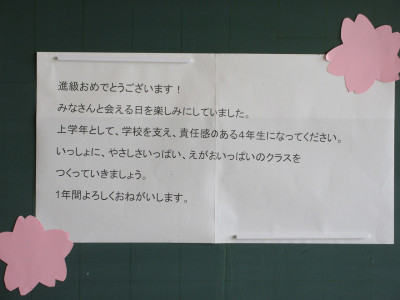 進級おめでとうございます！
みなさんと会える日を楽しみにしていました。
上学年として、学校を支え、責任感のある4年生になってください。
いっしょに、やさしさいっぱい、えがおいっぱいのクラスを
つくっていきましょう。
1年間よろしくおねがいします。